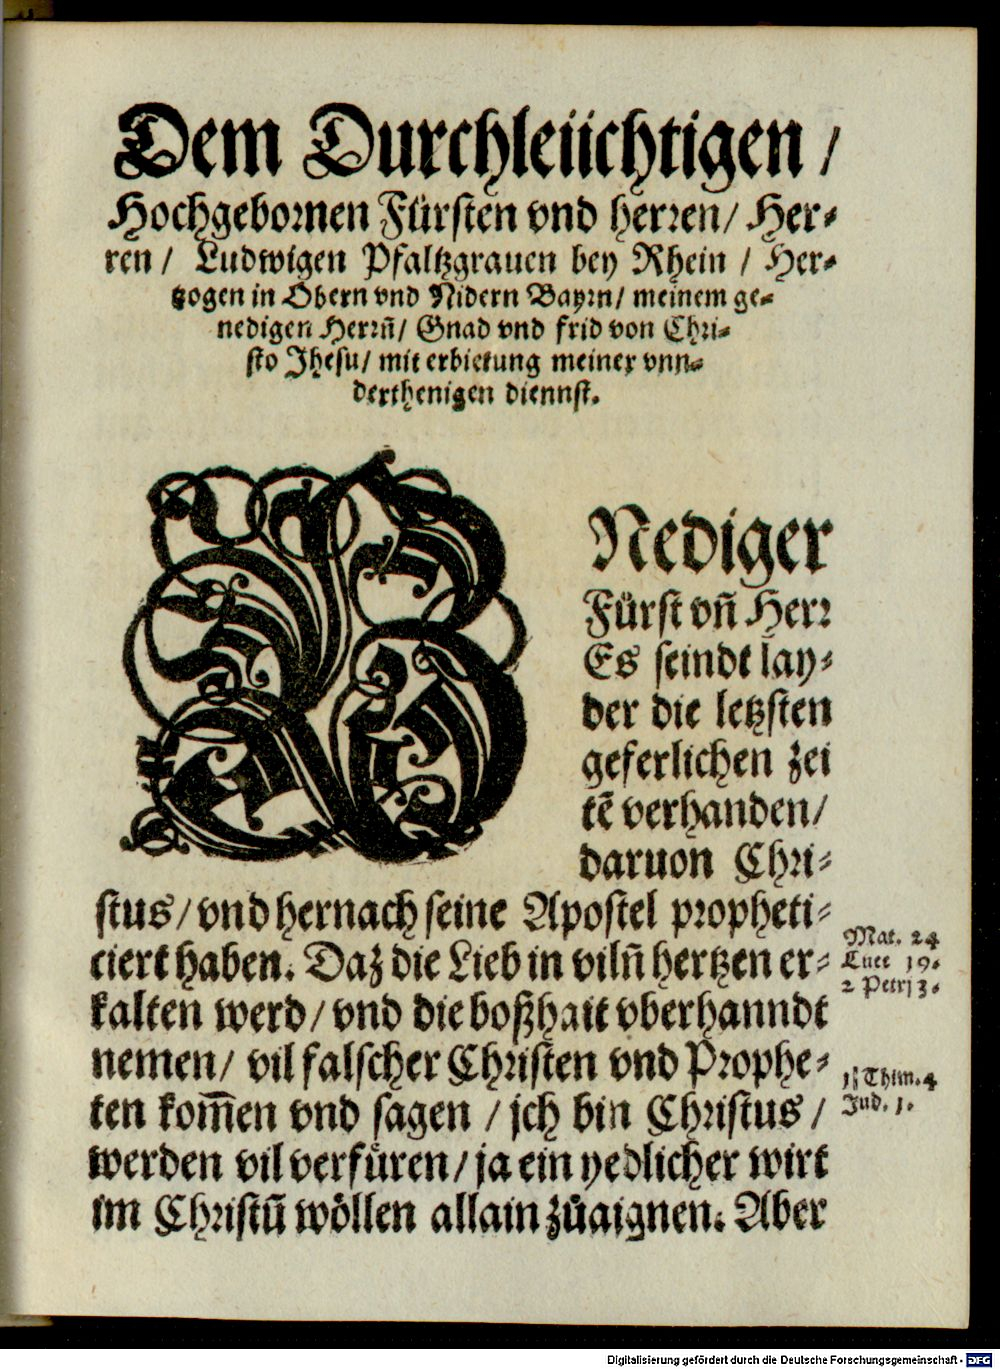 Dem Durchleiichtigen /
Hochgebornen Fürsten vnd herren/ Her-
ren / Ludwigen Pfaltzgrauen bey Rhein / Her-
tzogen in Obern vnd Nidern Bayrn/ meinem ge-
nedigen Herrñ/ Gnad vnd frid von Chri-
sto Jhesu/ mit erbietung meiner vnn-
derthenigen diennst.
GNediger
Fürst vñ Herr
Es seindt lay-
der die letzsten
geferlichen zei
tē verhanden/
daruon Chri-
stus/ vnd hernach seine Apostel propheti-
ciert haben. Daz die Lieb in vilñ hertzen er-
kalten werd/ vnd die boßhait vberhanndt
nemen/ vil falscher Christen vnd Prophe-
ten kom̄en vnd sagen / jch bin Christus /
werden vil verfüren/ ja ein yedlicher wirt
im Christū wöllen allain zůaignen. Aber
Mat. 24
Luce 19.
2 Petri 3.
1 Thim. 4
Jud. 1.
Digitalisierung gefördert durch die Deutsche Forschungsgemeinschaft - DFG